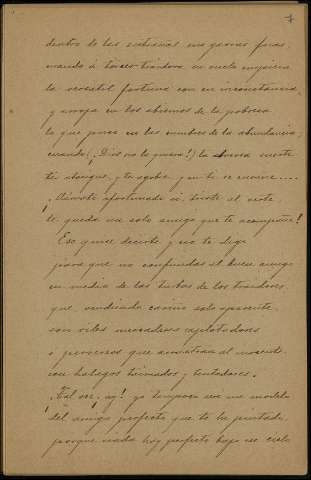 7
dentro de las entrañas sus garras fieras;
cuando á torcer traidora su vuelo empieza
la versátil fortuna con su inconstancia,
y arroja en los abismos de la pobreza
lo que puso en las cumbres de la abundancia;
cuando (¡Dios no lo quiera!) la suerte
te ahogue, y te agobie y en ti se encarne....
¡Llámote afortunado si
te queda un solo amigo que te acompañe!
Eso quise decirte y no te dije
para que no confundas al buen amigo
en medio de las turbas de los traidores
que, vendiendo cariño solo aparente,
son viles mercaderes explotadores
o perversos que acarician al inocente
con halagos taimados y tentadores.
¡Tal vez, ay! yo tampoco sea un modelo
del amigo perfecto que te he pintado,
porque nada hay perfecto bajo ese cielo